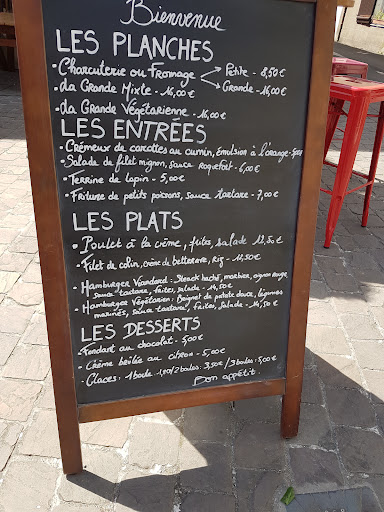 Bienvenue
LES PLANCHES
• Charcuterie ou Fromage Petite - 8,50€
Grande - 16,00€
• La Grande Mixte - 16,00€
• La Grande Végétarienne - 16,00€
LES ENTRÉES
• Crémeux de carottes au cumin, émulsion à l'orange - 5,00€
• Salade de filet mignon, sauce roquefort - 6,00€
• Terrine de lapin - 5,00€
• Friture de petits poissons, sauce tartare - 7,00€
LES PLATS
• Poulet à la crème, frites, salade 12,50€
• Filet de colin, crème de betterave, Riz - 12,50€
• Hamburger Viandard: Steack haché, morbier, oignon rouge,
sauce tartare, frites, salade - 14,50€
• Hamburger Végétarien: Beignet de patate douce, légumes
marinés, sauce tartare, frites, salade - 14,50€
LES DESSERTS
• Fondant au chocolat - 5,00€
• Crème brûlée au citron - 5,00€
• Glaces: 1 boule / 2 boules 3,50€ / 3 boules 5,00€
Bon appétit.